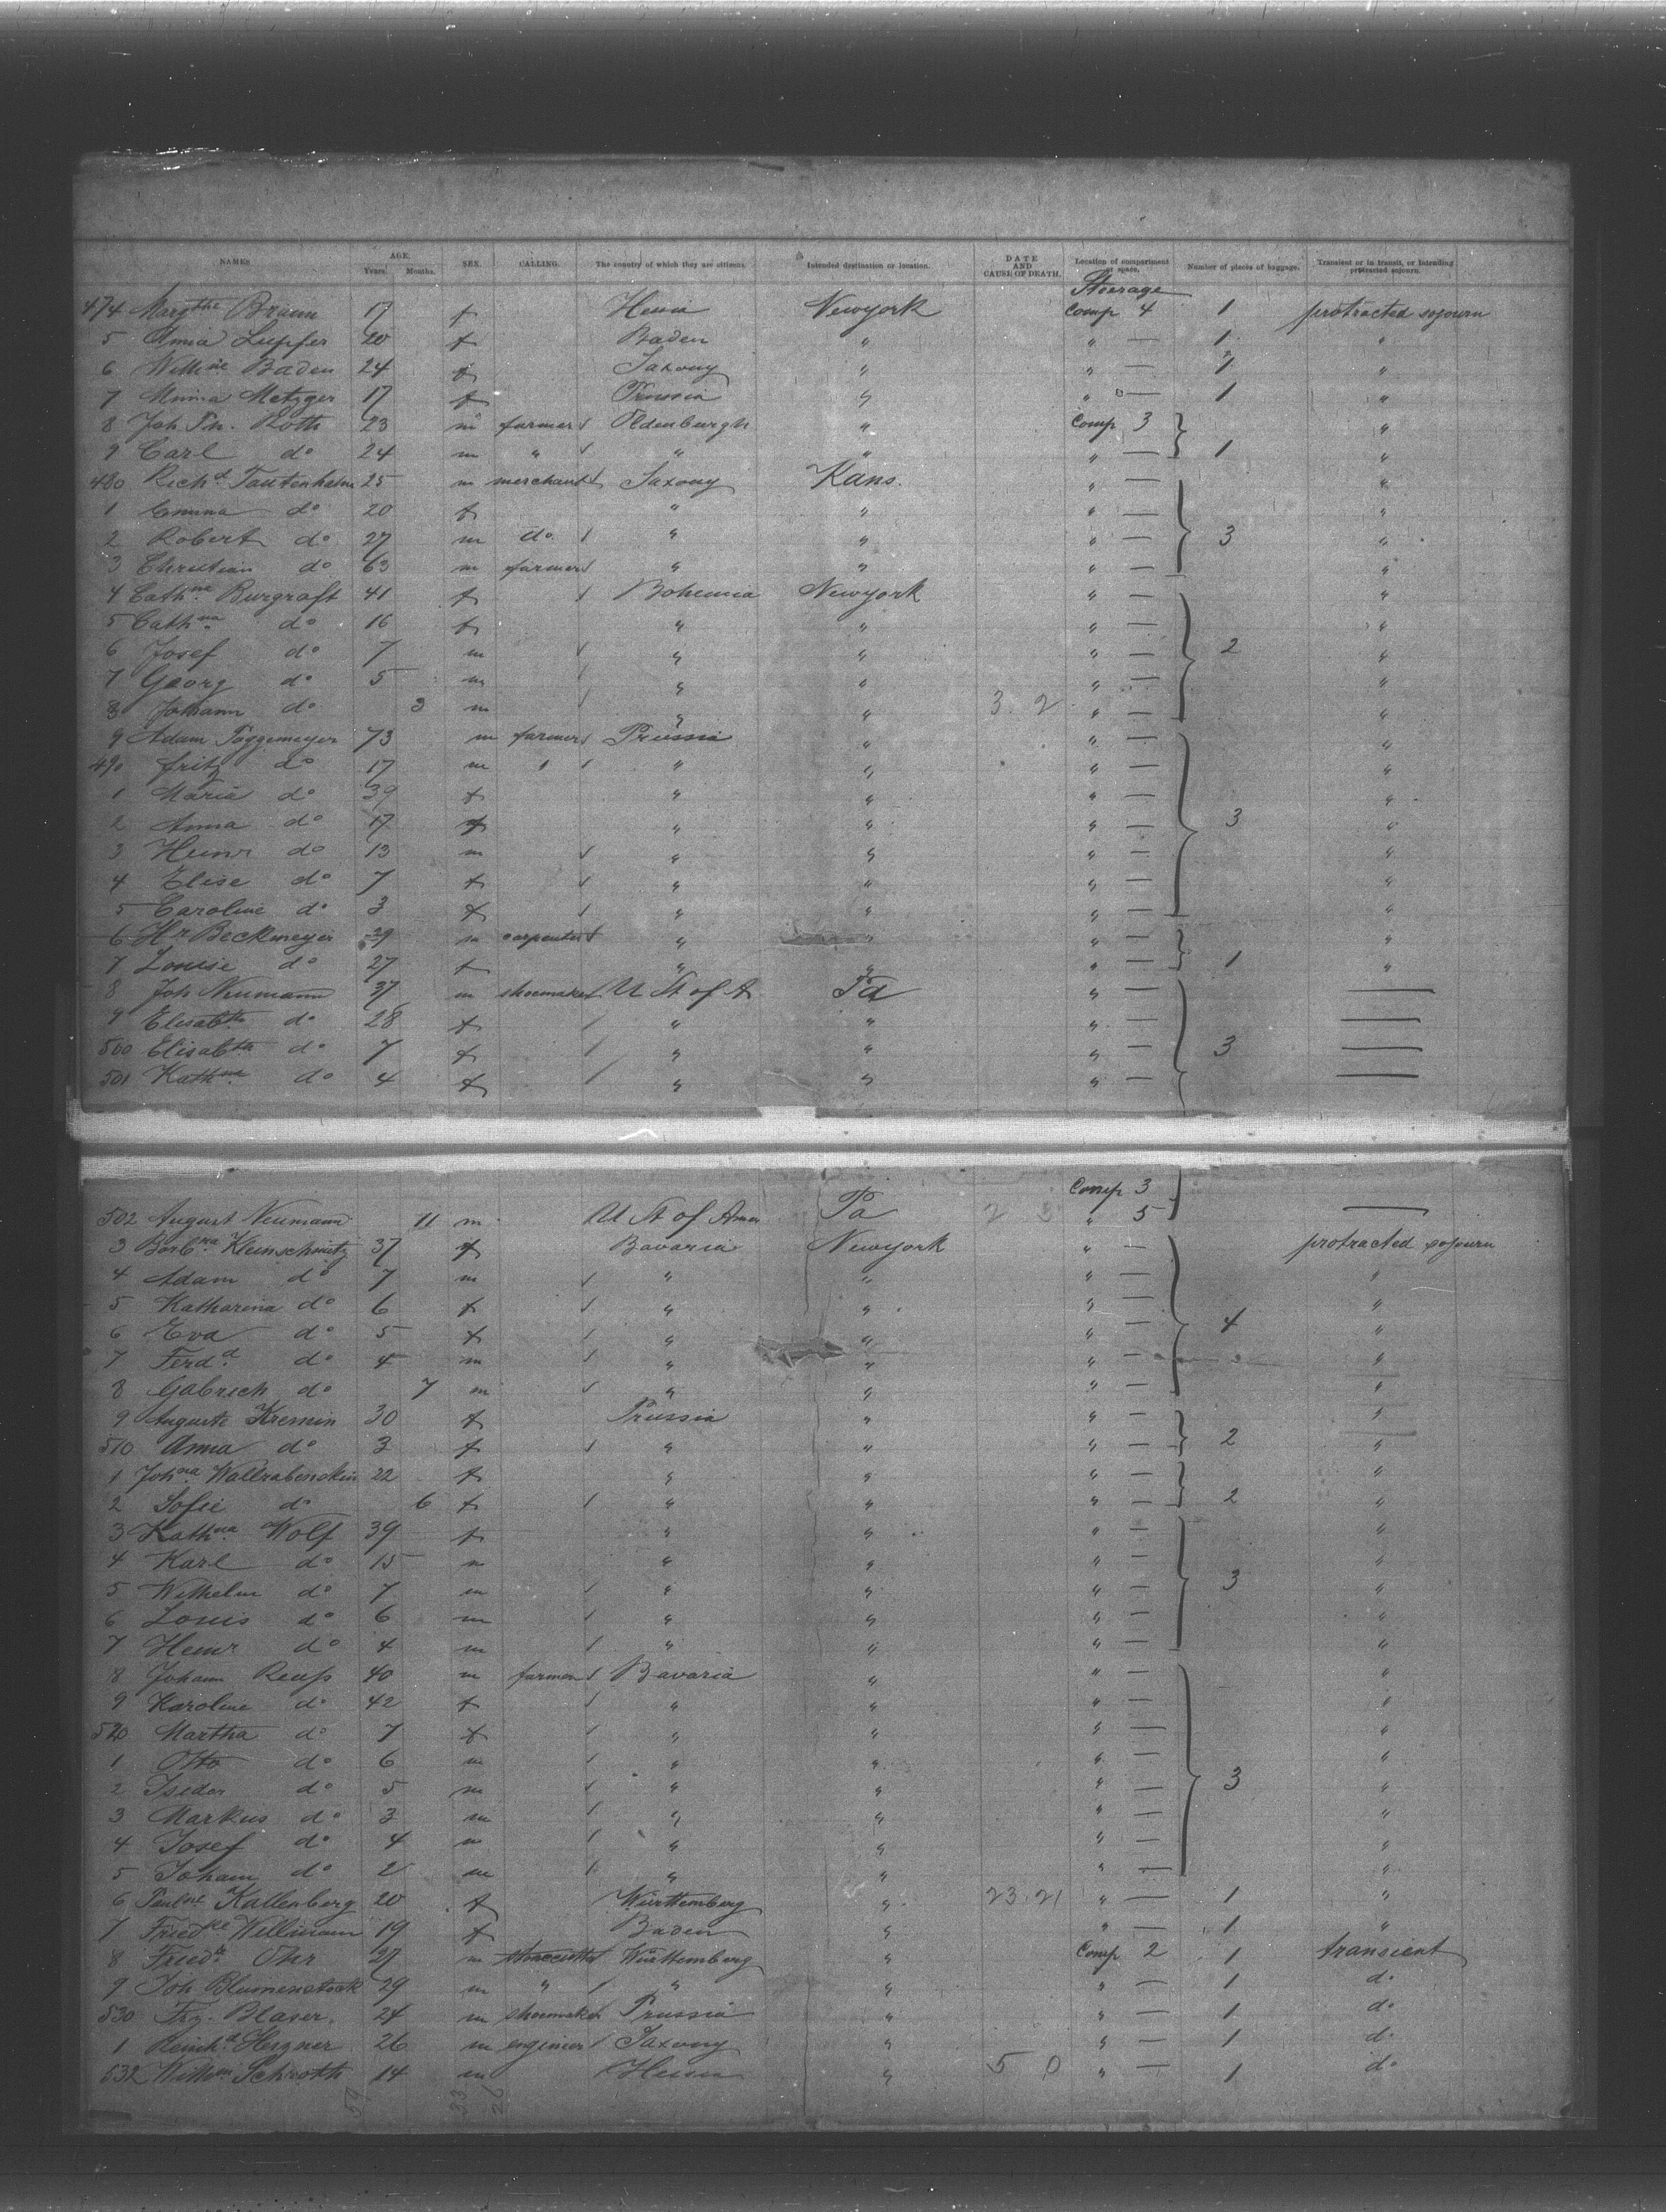 NAMES AGE. Years. Months. SEX. CALLING. The country of which they are citizens. Intended destination or location. DATE AND CAUSE OF DEATH. Location of compartment or space. Number of pieces of baggage. Transient or in transit, or intending protracted sojourn.
Steerage
474 Margthe Braun 17 f Hessia Newyork Comp 4 1 protracted sojourn
5 Anna Lupfer 20 f Baden " " — 1 "
6 Wilhne Baden 24 f Saxony " " — 1 "
7 Minna Metzger 17 f Prussia " " — 1 "
8 Joh Ph. Roth 23 m farmer Oldenburgh " Comp 3 "
9 Carl do 24 m " " " " — 1 "
480 Richd Tautenhahn 25 m merchant Saxony Kans. " — "
1 Emma do 20 f " " " — "
2 Robert do 27 m do. " " " — 3 "
3 Christian do 63 m farmer " " " — "
4 Cathne Burgraft 41 f Bohemia Newyork " — "
5 Cathna do 16 f " " " — "
6 Josef do 7 m " " " — 2 "
7 Georg do 5 m " " " — "
8 Johann do 3 m " " 3. 2 " — "
9 Adam Poggemeyer 73 m farmer Prussia " " — "
490 Fritz do 17 m " " " " — "
1 Maria do 39 f " " " — "
2 Anna do 17 f " " " — 3 "
3 Heinr do 13 m " " " — "
4 Elise do 7 f " " " — "
5 Caroline do 3 f " " " — "
6 Hr Beckmeyer 29 m carpenter " " " — "
7 Louise do 27 f " " " — 1 "
8 Joh Neumann 37 m shoemaker U St of A Pa " — —
9 Elisabth do 28 f " " " — —
500 Elisabth do 7 f " " " — 3 —
501 Kathna do 4 f " " " — —
Comp 3
502 August Neumann 11 m U St of Amer Pa " 5 —
3 Barbna Kleinschmitz 37 f Bavaria Newyork " — protracted sojourn
4 Adam do 7 m " " " — "
5 Katharina do 6 f " " " — "
6 Eva do 5 f " " " — 4 "
7 Ferdd do 4 m " " " — "
8 Gabrieh do 7 m " " " — "
9 Auguste Kremin 30 f Prussia " " — "
510 Anna do 3 f " " " — 2 "
1 Johna Wallrabenstein 22 f " " " — "
2 Sofie do 6 f " " " — 2 "
3 Kathna Wolf 39 f " " " — "
4 Karl do 15 m " " " — "
5 Wilhelm do 7 m " " " — 3 "
6 Louis do 6 m " " " — "
7 Heinr do 4 m " " " — "
8 Johann Reuss 40 m farmer Bavaria " " — "
9 Karoline do 42 f " " " — "
520 Martha do 7 f " " " — "
1 Otto do 6 m " " " — "
2 Isidor do 5 m " " " — 3 "
3 Markus do 3 m " " " — "
4 Josef do 4 m " " " — "
5 Johann do 2 m " " " — "
6 Paulne Kallenberg 20 f Württemberg " 23. 21 " — 1 "
7 Friedke Willmann 19 f Baden " " — 1 "
8 Friedk Ohr 27 m Württemberg " Comp 2 1 transient
9 Joh Blumenstock 29 m " " " " — 1 do
530 Frz. Blaser. 24 m shoemaker Prussia " " — 1 do
1 Reinhd Hergner 26 m engineer Saxony " " — 1 do
532 Wilhm Schroth 14 m Hessia " 5 0 " — 1 do
59 33 26